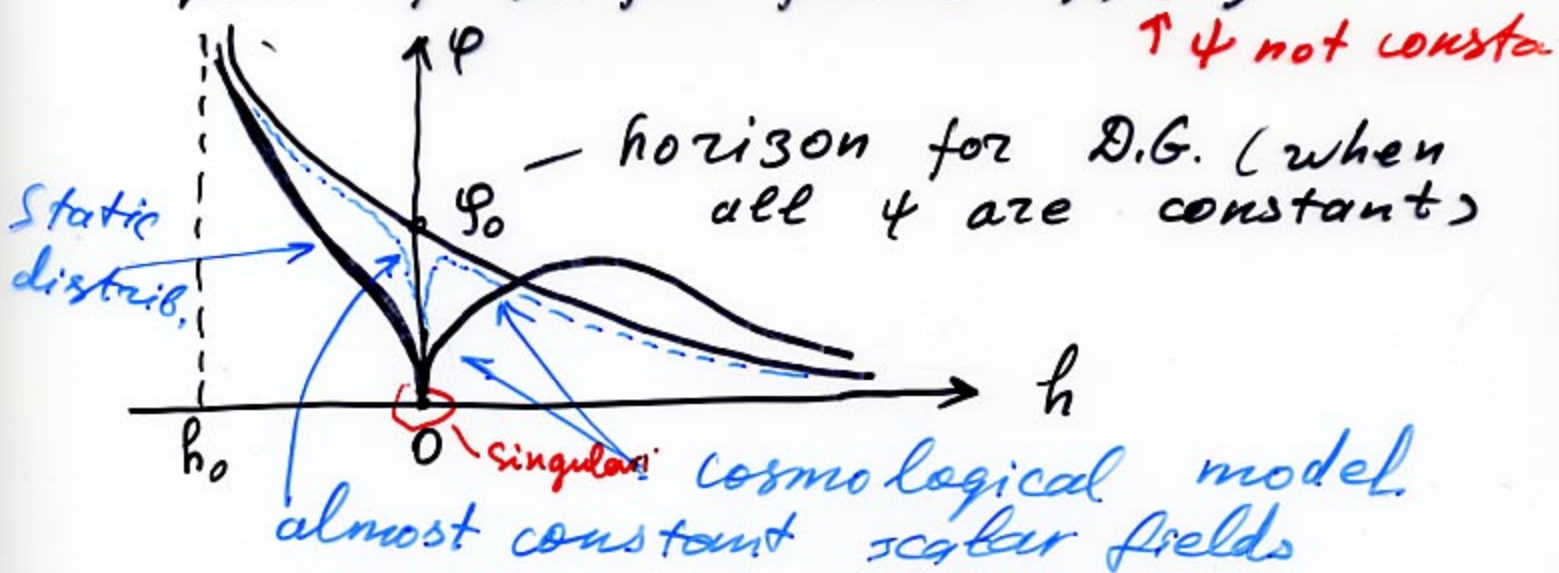 ↑ ψ not consta
φ
— horizon for D.G. (when
all ψ are constant)
φ₀
Static
distrib.
h
h₀
0
singular
cosmological model.
almost constant scalar fields